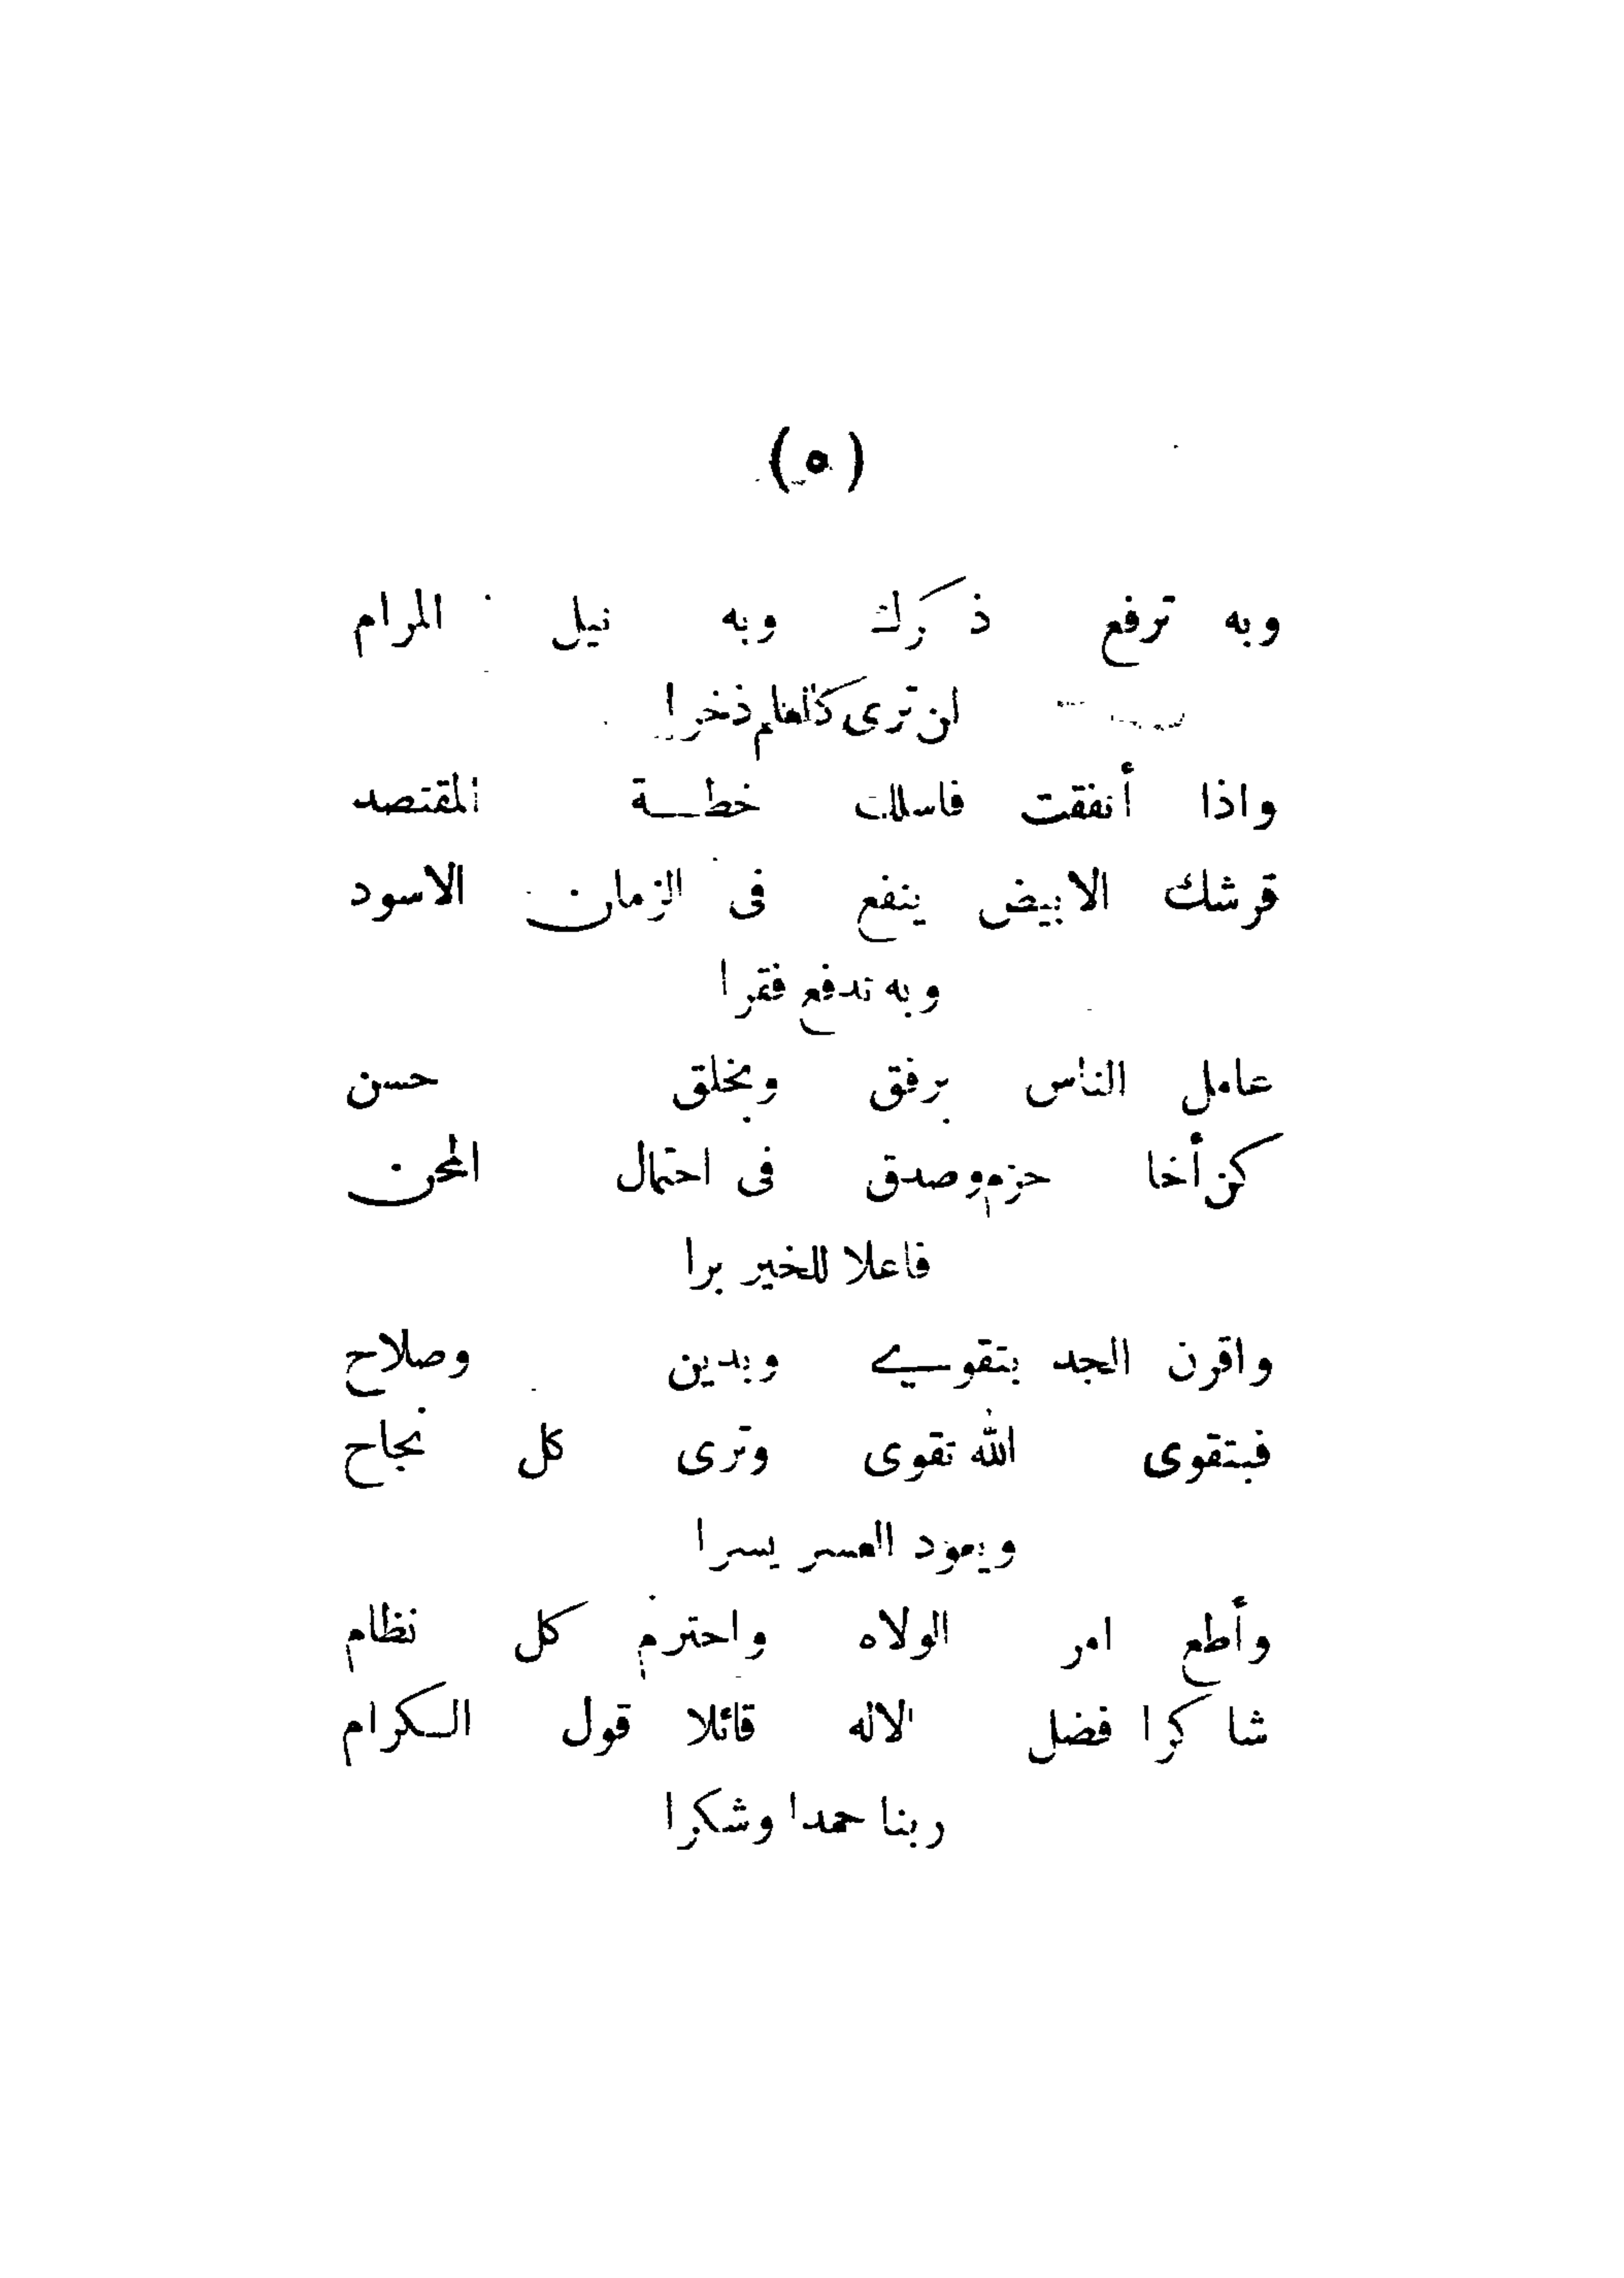 (٥)
وبه ترفع ذكرك وبه نيل المرام
لن ترى كالعلم ذخرا
واذا أنفقت فاسلك خطــة المقتصد
قرشك الابيض ينفع فى الزمان الاسود
وبه تدفع فقرا
عامل الناس برفق وبخلق حسن
كن أخا حزم وصدق فى احتمال المحن
فاعلا للخير برا
واقرن الجد بتقوى وبدين وصلاح
فبتقوى الله تقوى وترى كل نجاح
ويعود العسر يسرا
وأطع امر الولاه واحترم كل نظام
شاكرا فضل الاله قائلا قول الكرام
ربنا حمدا وشكرا